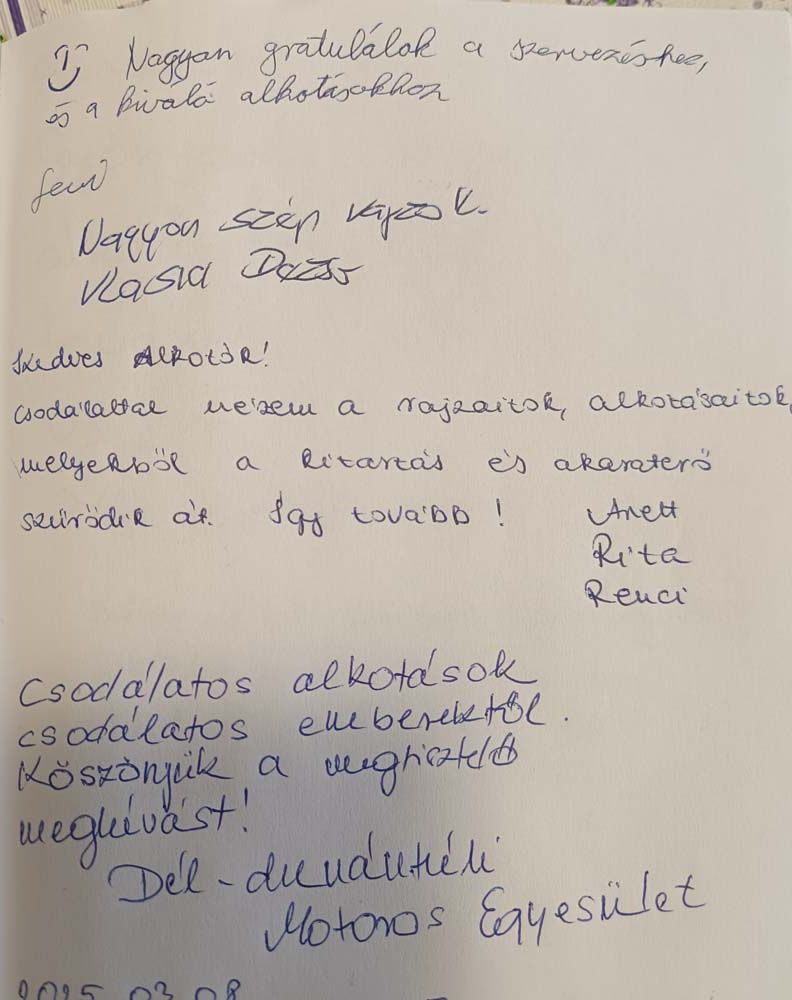 Nagyan gratulálok a szervezéshez,
és a kiváló alkotásokhoz
Nagyon szép
Kedves Alkotók!
Csodálattal nézem a rajzaitok, alkotásaitok,
melyekből a kitartás és akaraterő
szűrődik át. Így tovább!
Anett
Rita
Renci
Csodálatos alkotások
csodálatos emberektől.
Köszönjük a megtisztelő
meghívást!
Dél-dunántúli
Motoros Egyesület
2025 03 08